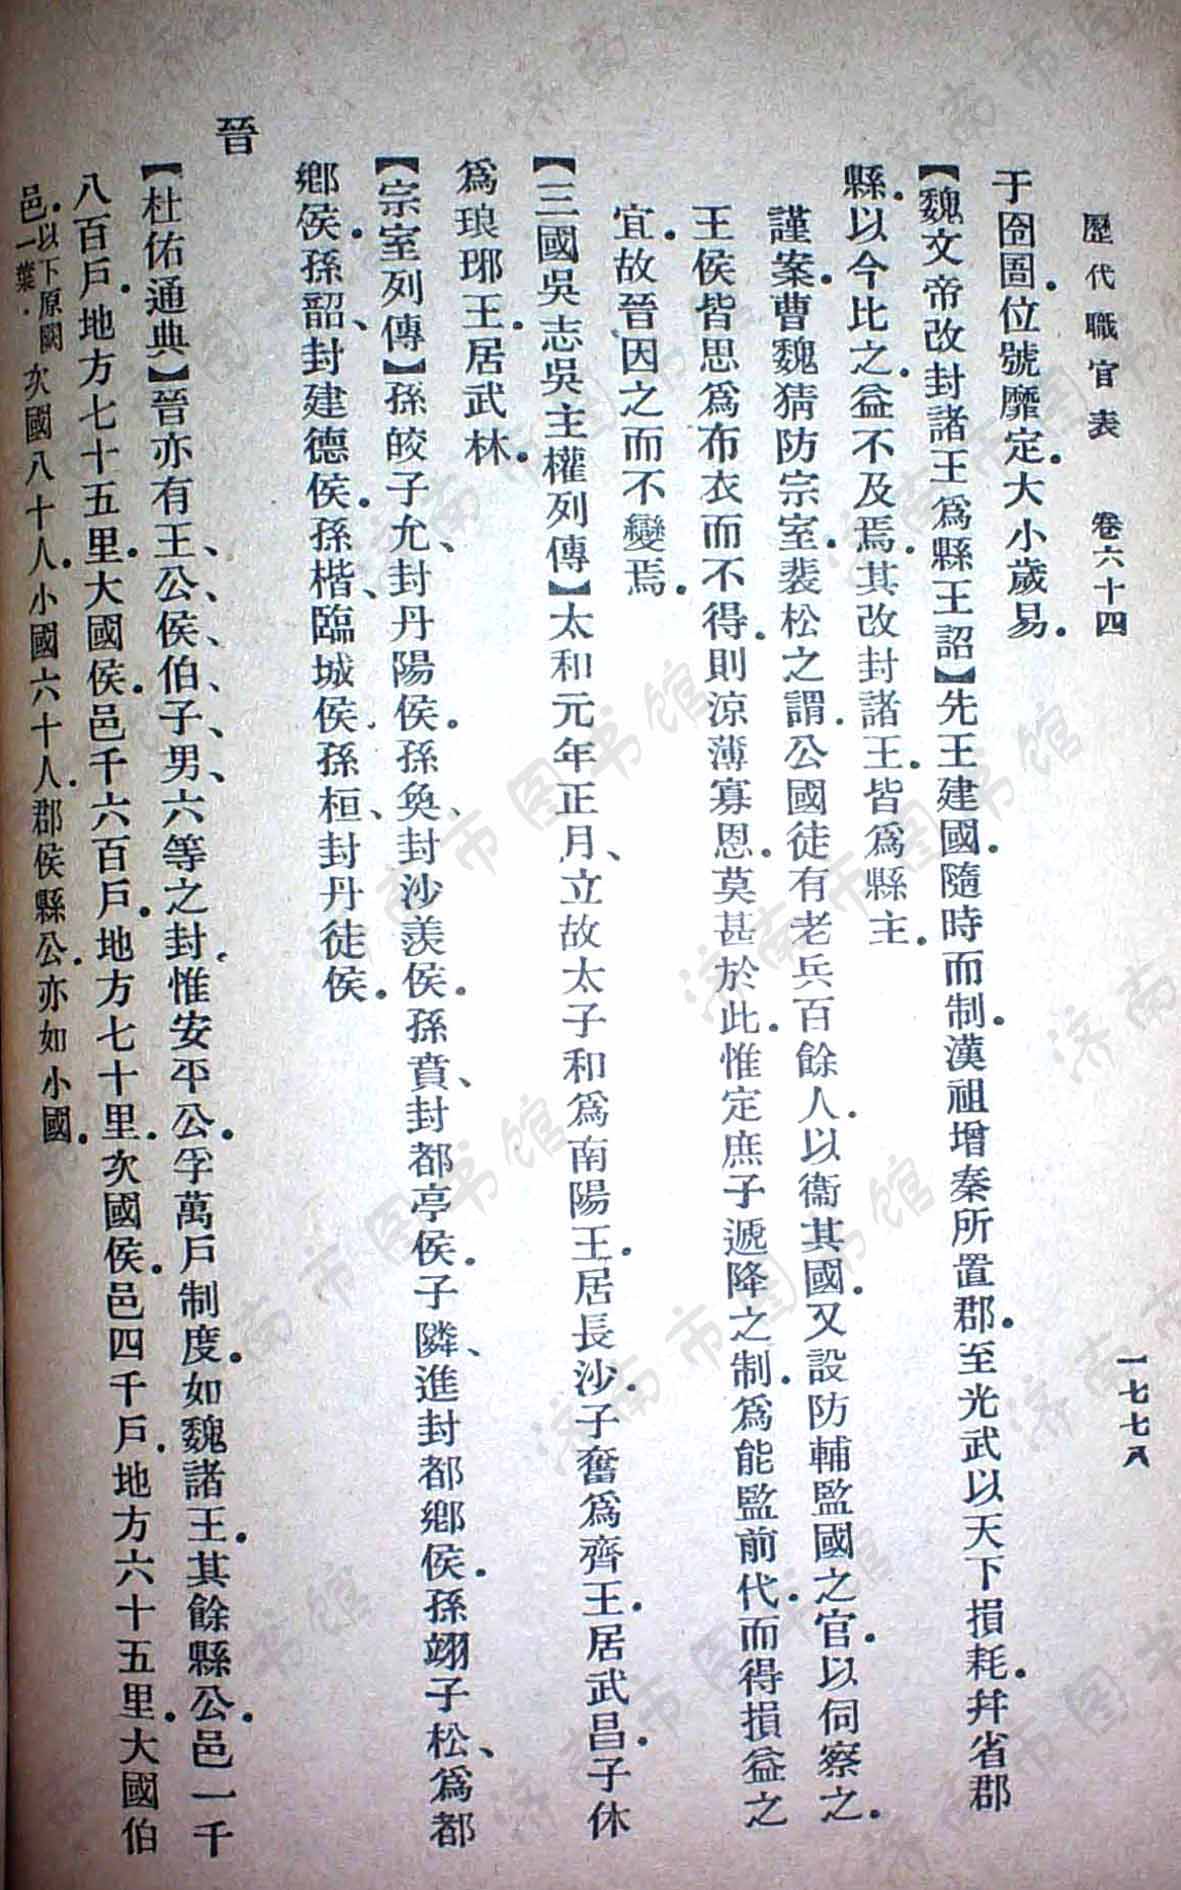 歷代職官表　卷六十四　一七七八
于囹圄。位號靡定。大小歲易。
【魏文帝改封諸王爲縣王詔】先王建國。隨時而制。漢祖增秦所置郡。至光武以天下損耗。幷省郡
縣。以今比之。益不及焉。其改封諸王。皆爲縣主。
謹案。曹魏猜防宗室。裴松之謂。公國徒有老兵百餘人。以衞其國。又設防輔監國之官。以伺察之。
王侯皆思爲布衣而不得。則涼薄寡恩。莫甚於此。惟定庶子遞降之制。爲能監前代。而得損益之
宜。故晉、因之而不變焉。
【三國吳志吳主權列傳】太和元年正月、立故太子和爲南陽王。居長沙。子奮爲齊王。居武昌。子休
爲琅琊王。居武林。
【宗室列傳】孫皎子允、封丹陽侯。孫奐、封沙羨侯。孫賁、封都亭侯。子隣、進封都鄉侯。孫翊子松、爲都
鄉侯。孫韶、封建德侯。孫楷、臨城侯。孫桓、封丹徒侯。
晉
【杜佑通典】晉亦有王、公、侯、伯、子、男、六等之封。惟安平公。孚萬戶制度。如魏諸王。其餘縣公。邑一千
八百戶。地方七十五里。大國侯。邑千六百戶。地方七十里。次國侯。邑四千戶。地方六十五里。大國伯
邑。以下原闕一葉。次國八十人。小國六十人。郡侯縣公。亦如小國。